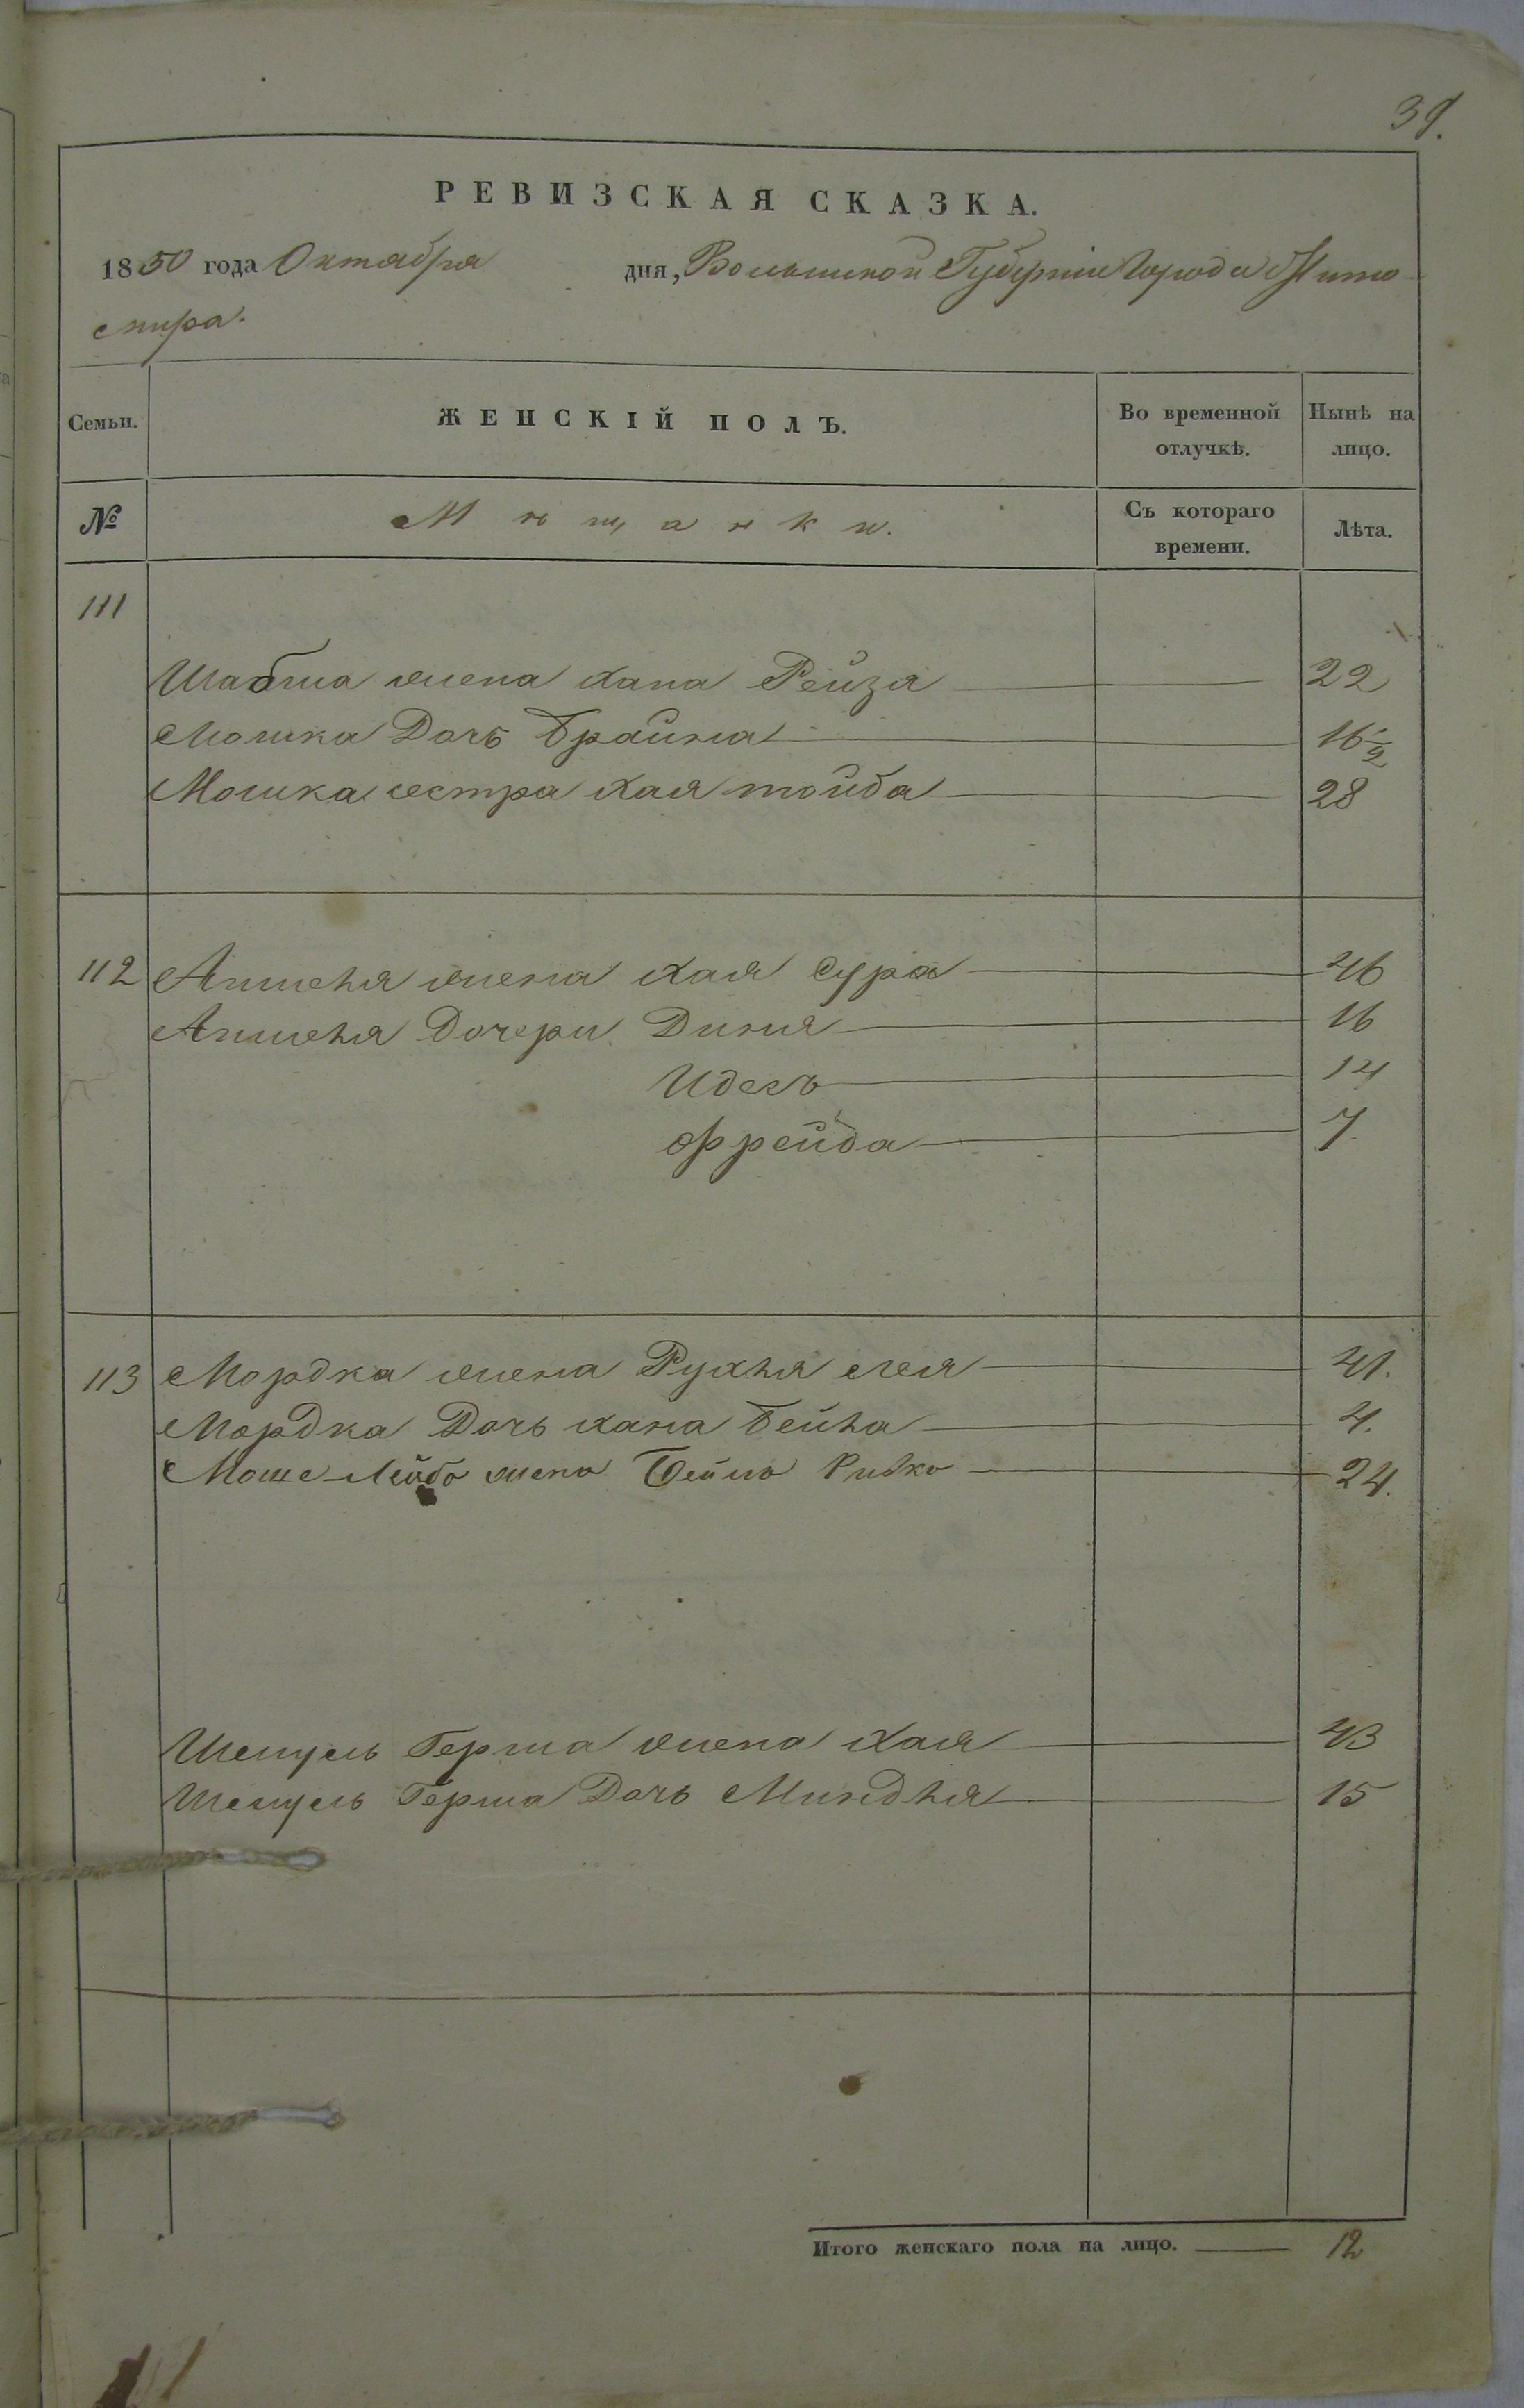 39.
РЕВИЗСКАЯ СКАЗКА.
1850 года Октября дня, Волынской Губерніи Города Жито
мира.
Семьи. ЖЕНСКІЙ ПОЛЪ. Во временной отлучкѣ. Нынѣ на лицо.
№ Мѣщанки. Съ котораго времени. Лѣта.
111
Шабша жена Хана Рейзя 22
Мошка Дочь Брайна 16 1/2
Мошка сестра Хая тойба 28
112 жена Хая Сура 46
Дочери Диня 16
Идесъ 14
Фрейда 7.
113 Мордка жена Рухля лея 41.
Мордка Дочь Хана Бейла 4.
Моше-Лейба жена Бейла Ривка 24.
Шемуель Герша жена Хая 43
Шемуель Герша Дочь Миндля 15
Итого женскаго пола на лицо. 12